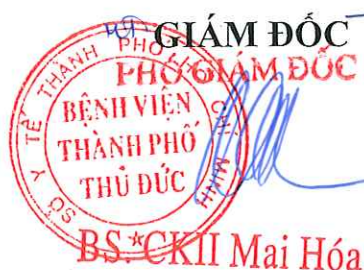 GIÁM ĐỐC
PHÓ GIÁM ĐỐC
SỞ Y TẾ THÀNH PHỐ HỒ CHÍ MINH
BỆNH VIỆN
THÀNH PHỐ
THỦ ĐỨC
BS.*CKII Mai Hóa